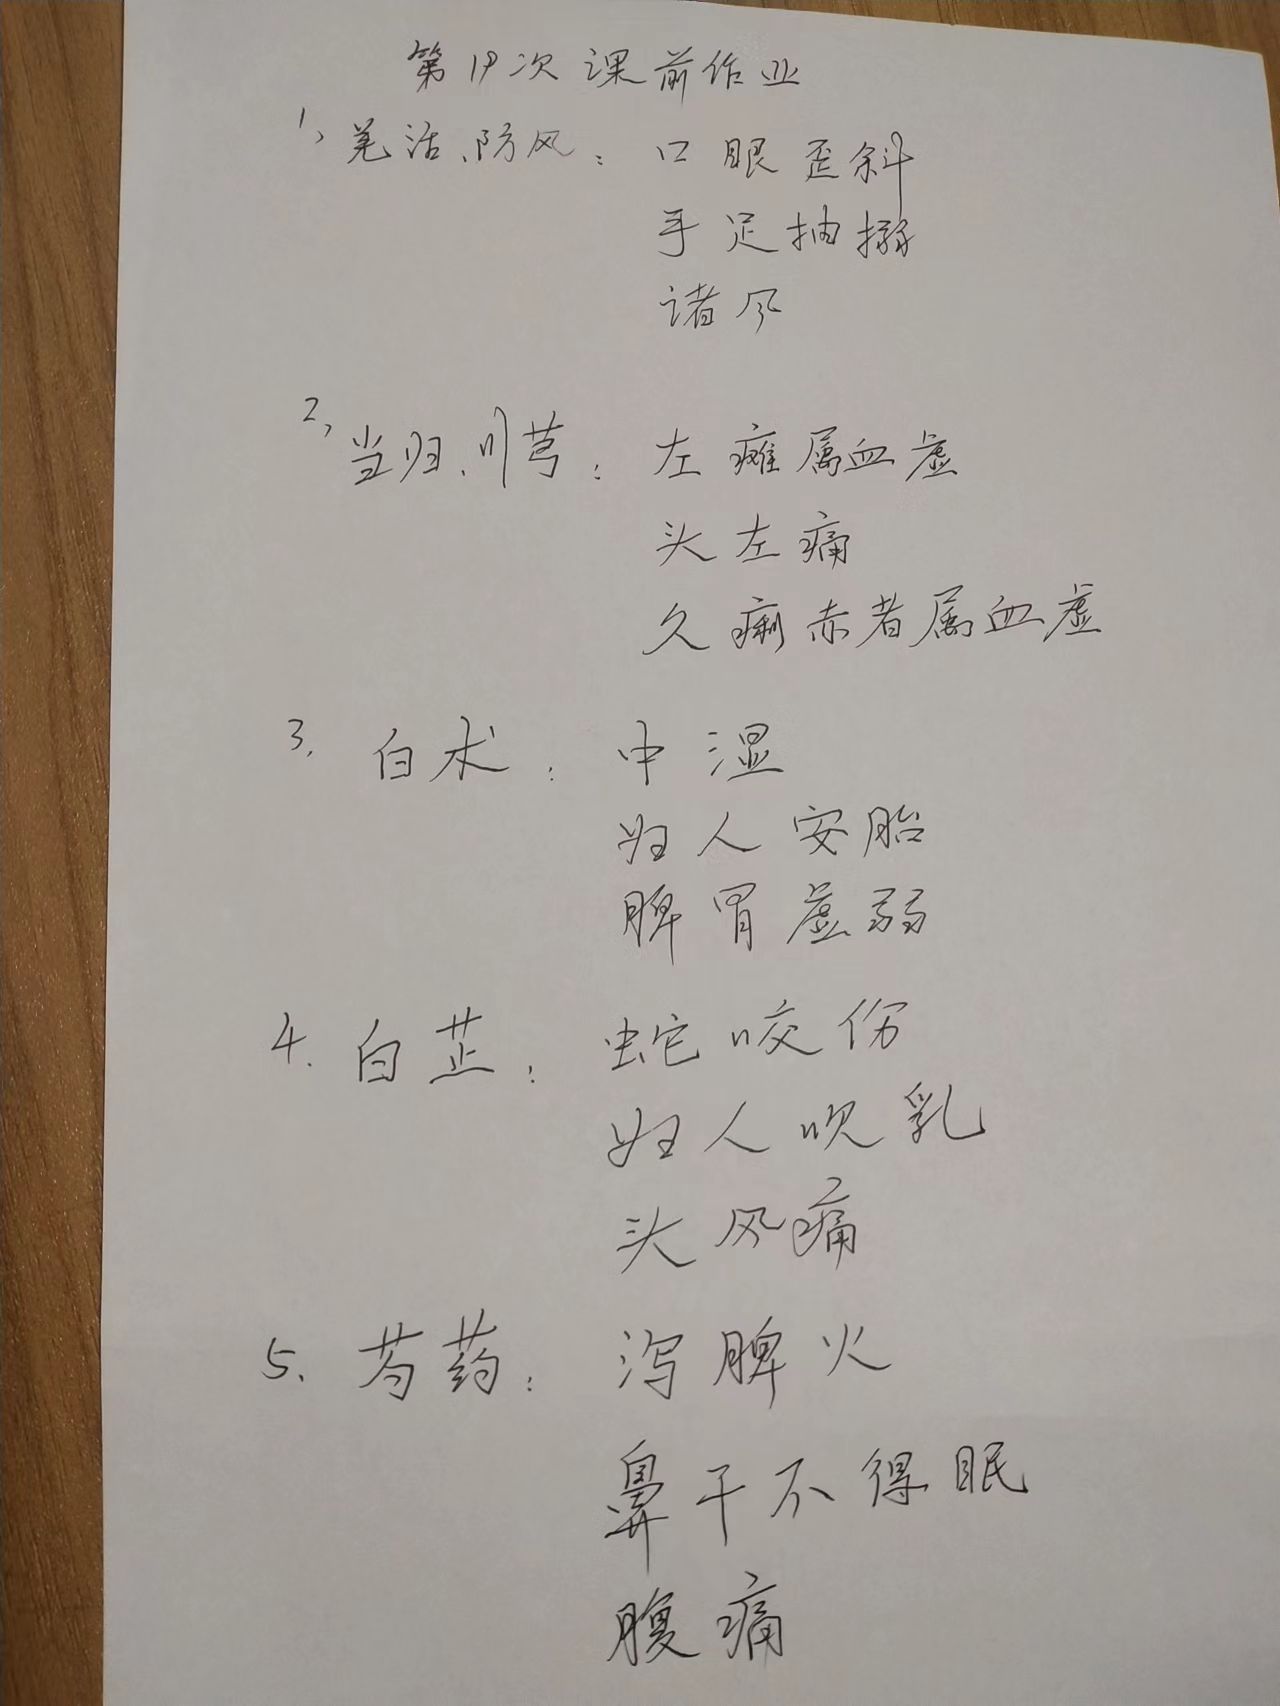 第19次课前作业
1、羌活、防风：口眼歪斜
手足抽搦
诸风
2、当归、川芎：左瘫属血虚
头左痛
久痢赤者属血虚
3. 白术：中湿
妇人安胎
脾胃虚弱
4. 白芷：蛇咬伤
妇人吹乳
头风痛
5. 芍药：泻脾火
鼻干不得眠
腹痛